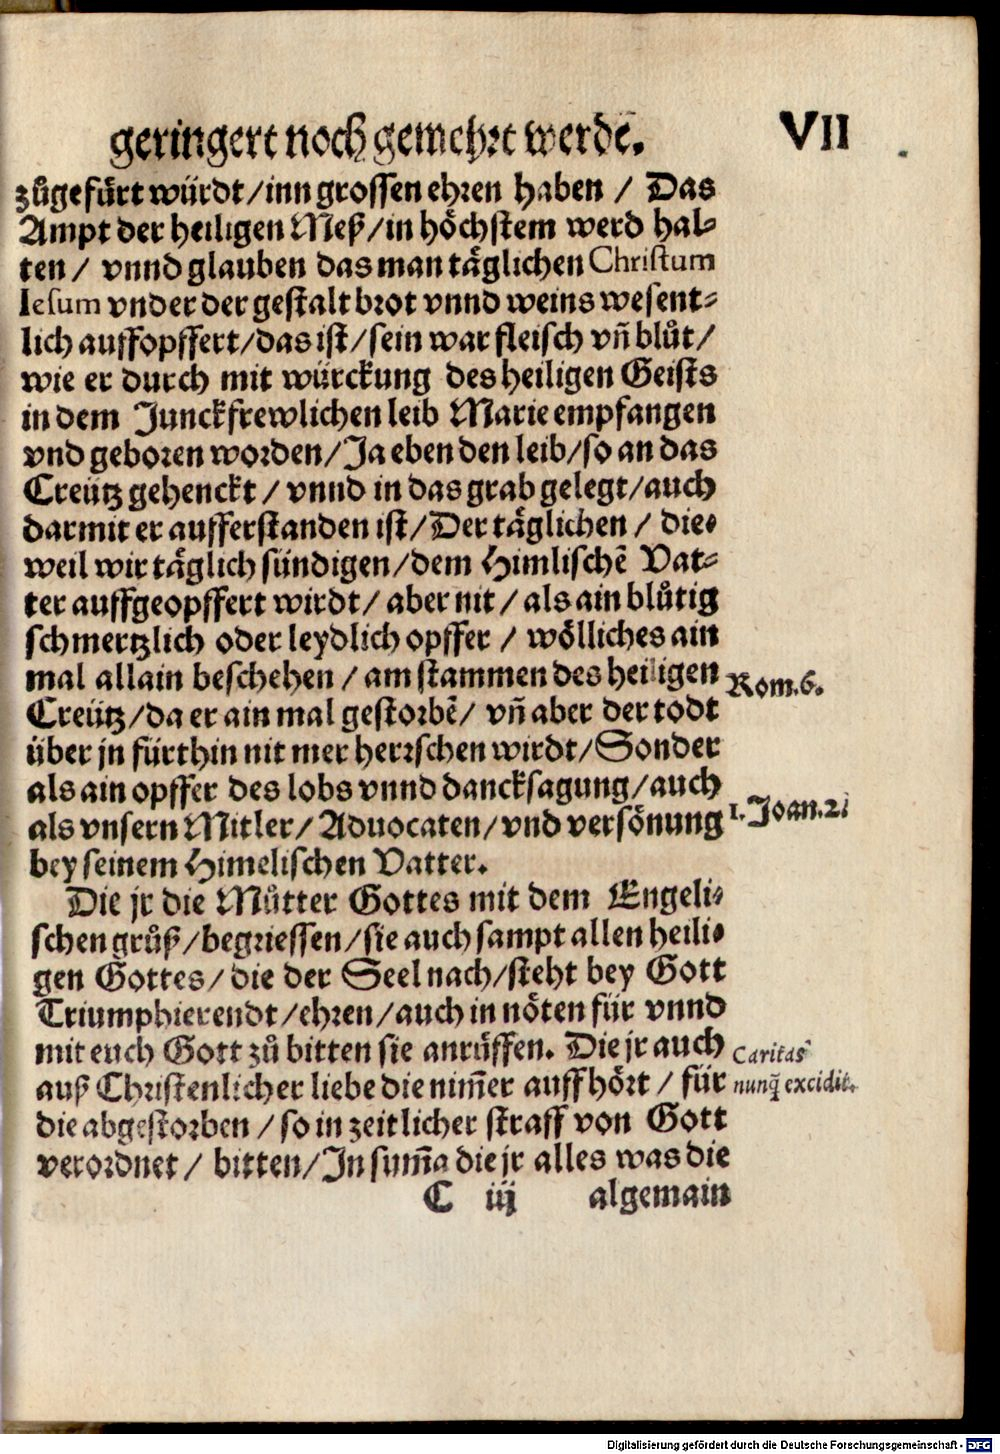 geringert noch gemehrt werdē. VII
zůgefürt würdt/inn grossen ehren haben / Das
Ampt der heiligen Meß/in höchstem werd hal⸗
ten / vnnd glauben das man täglichen Christum
Iesum vnder der gestalt brot vnnd weins wesent⸗
lich auffopffert/das ist/sein war fleisch vñ blůt/
wie er durch mit würckung des heiligen Geists
in dem Junckfrewlichen leib Marie empfangen
vnd geboren worden/Ja eben den leib/so an das
Creütz gehenckt / vnnd in das grab gelegt/auch
darmit er aufferstanden ist/Der täglichen / die⸗
weil wir täglich sündigen/dem Himlischē Vat⸗
ter auffgeopffert wirdt/ aber nit / als ain blůtig
schmertzlich oder leydlich opffer / wölliches ain
mal allain beschehen / am stammen des heiligen
Rom.6.
Creütz/da er ain mal gestorbē/ vñ aber der todt
über jn fürthin nit mer herrschen wirdt/Sonder
als ain opffer des lobs vnnd dancksagung/auch
als vnsern Mitler/ Aduocaten/vnd versönung
1.Joan.2.
bey seinem Himelischen Vatter.
Die jr die Můtter Gottes mit dem Engeli⸗
schen grůß/begriessen/sie auch sampt allen heili⸗
gen Gottes/ die der Seel nach/steht bey Gott
Triumphierendt/ehren/auch in nöten für vnnd
mit euch Gott zů bitten sie anrůffen. Die jr auch
auß Christenlicher liebe die nim̃er auffhört / für
Caritas
nunq̃ excidit.
die abgestorben / so in zeitlicher straff von Gott
verordnet / bitten/In sum̃a die jr alles was die
C iij algemain
Digitalisierung gefördert durch die Deutsche Forschungsgemeinschaft - DFG